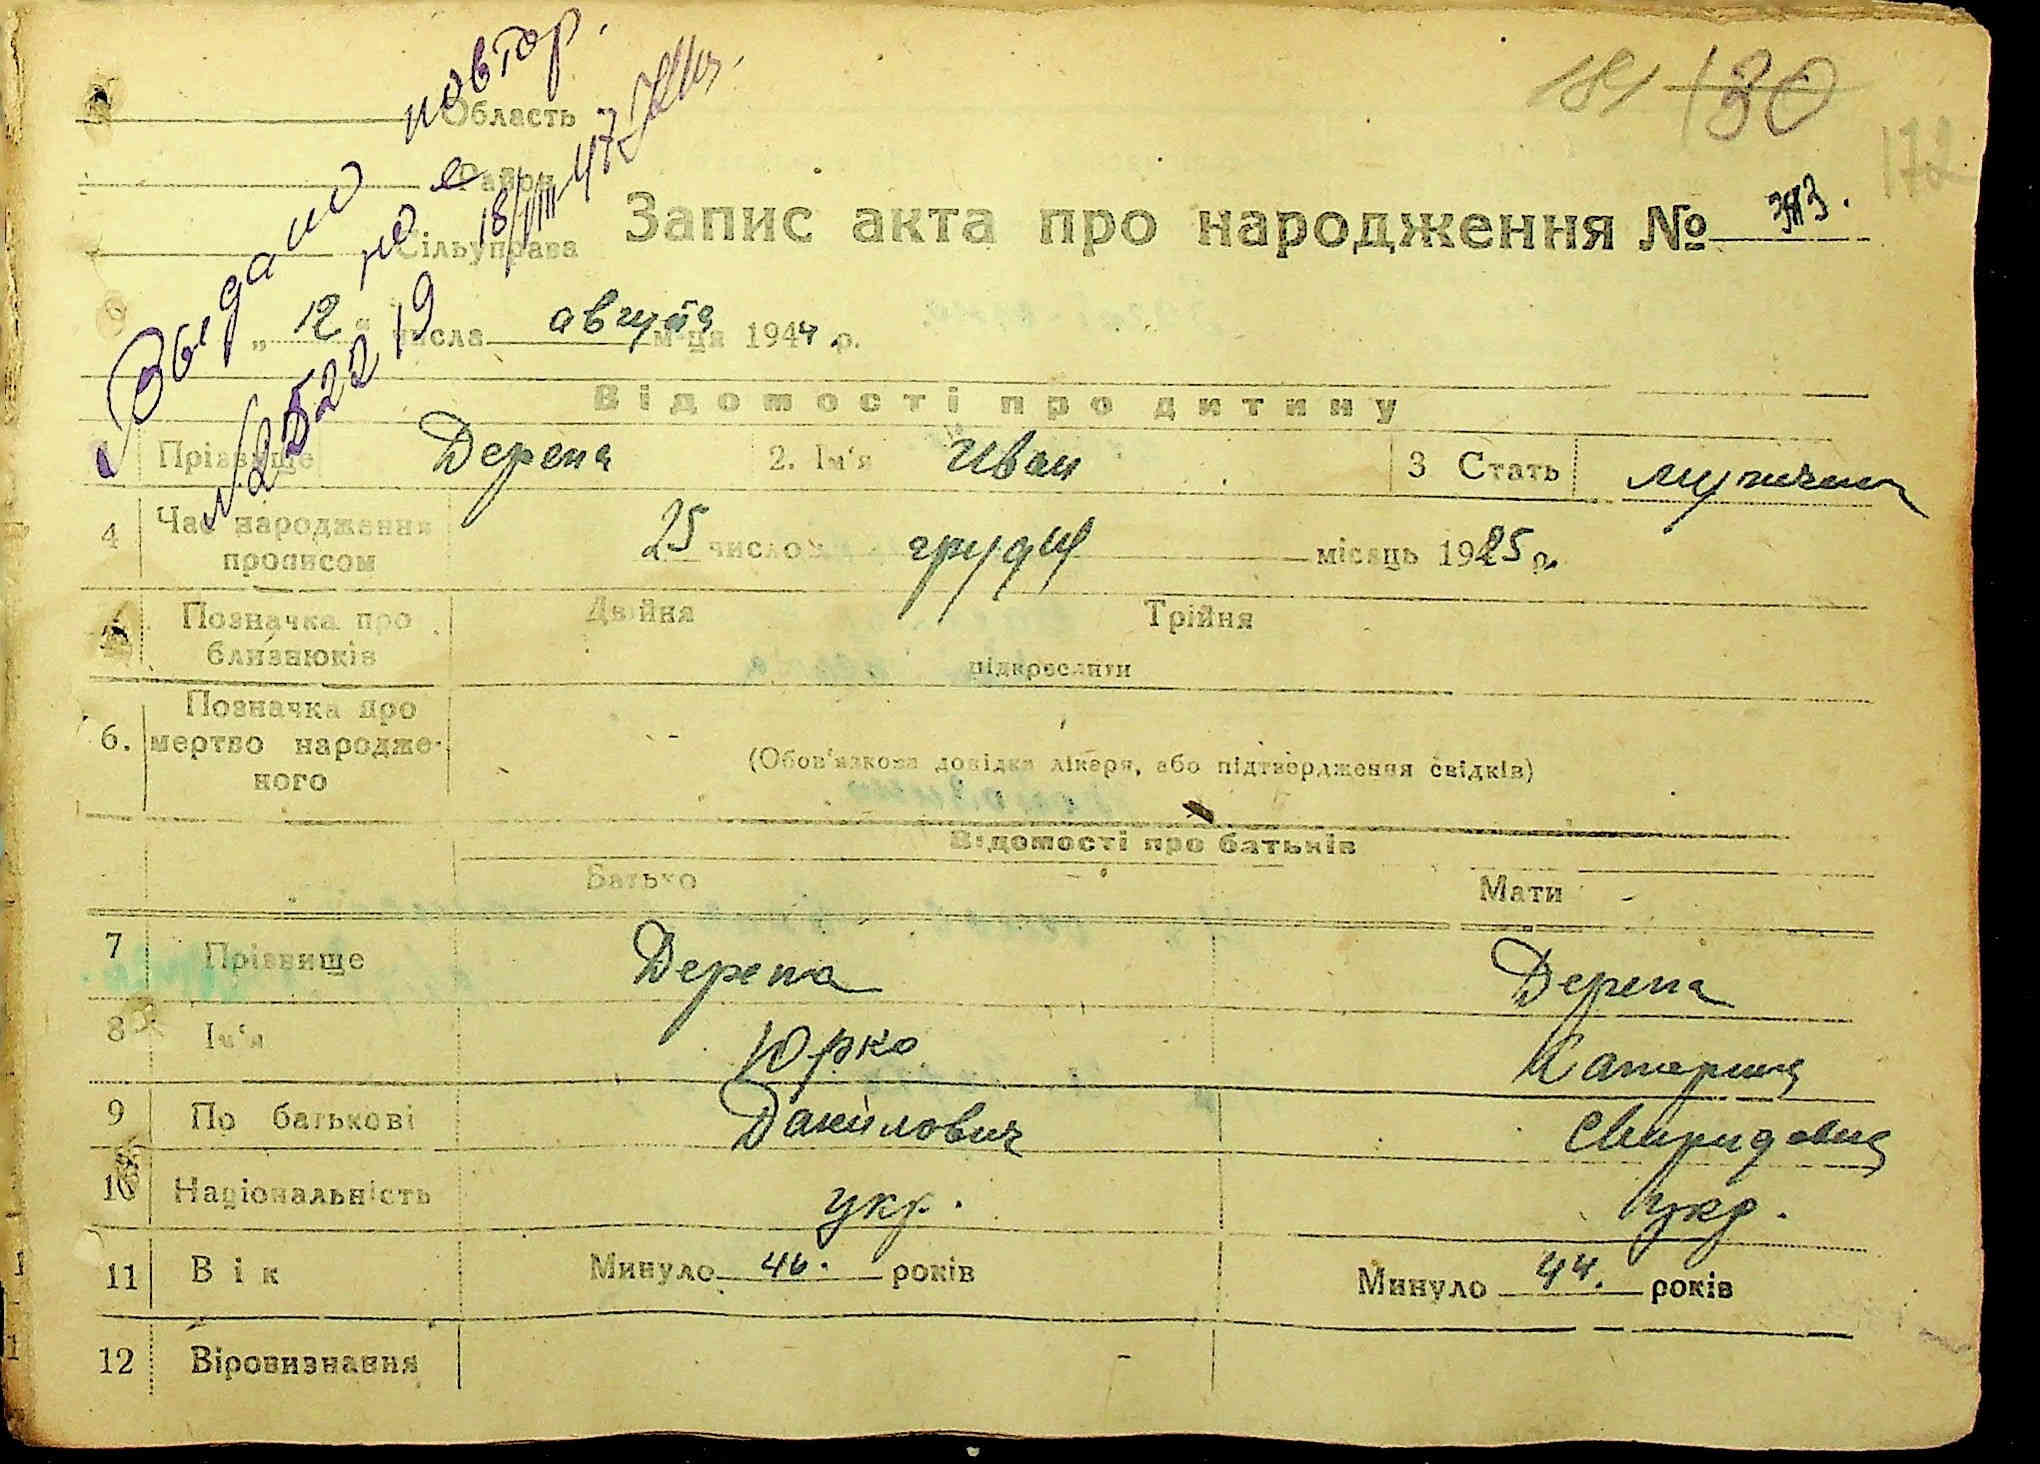 181 130
172
Выдано повтор.
но е
№ 252219 18/VIII-47
Область
Район
Сільуправа
Запис акта про народження №
„ 12 " числа августа м-ця 1944 р.
Відомості про дитину
Прізвище Дерепа 2. Ім'я Иван 3 Стать мужчина
4 Час народження прописом 25 число грудня місяць 1925 р.
Позначка про близнюків Двійня Трійня
підкреслити
6. Позначка про мертво народженого
(Обов'язкова довідка лікаря, або підтвердження свідків)
Відомості про батьків
Батько Мати
7 Прізвище Дерепа Дерепа
8 Ім'я Юрко Катерина
9 По батькові Данилович Свиридовна
10 Національність укр. укр.
11 Вік Минуло 46. років Минуло 44. років
12 Віровизнання